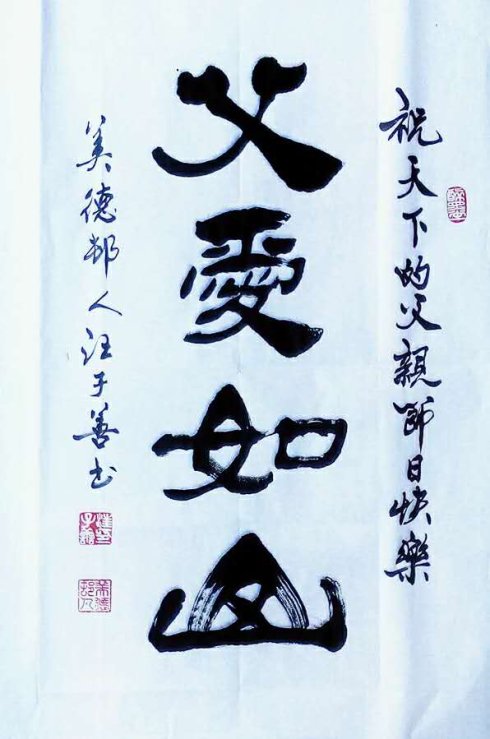 祝天下的父親節日快樂
父愛如山
美德鄰人汪子善书